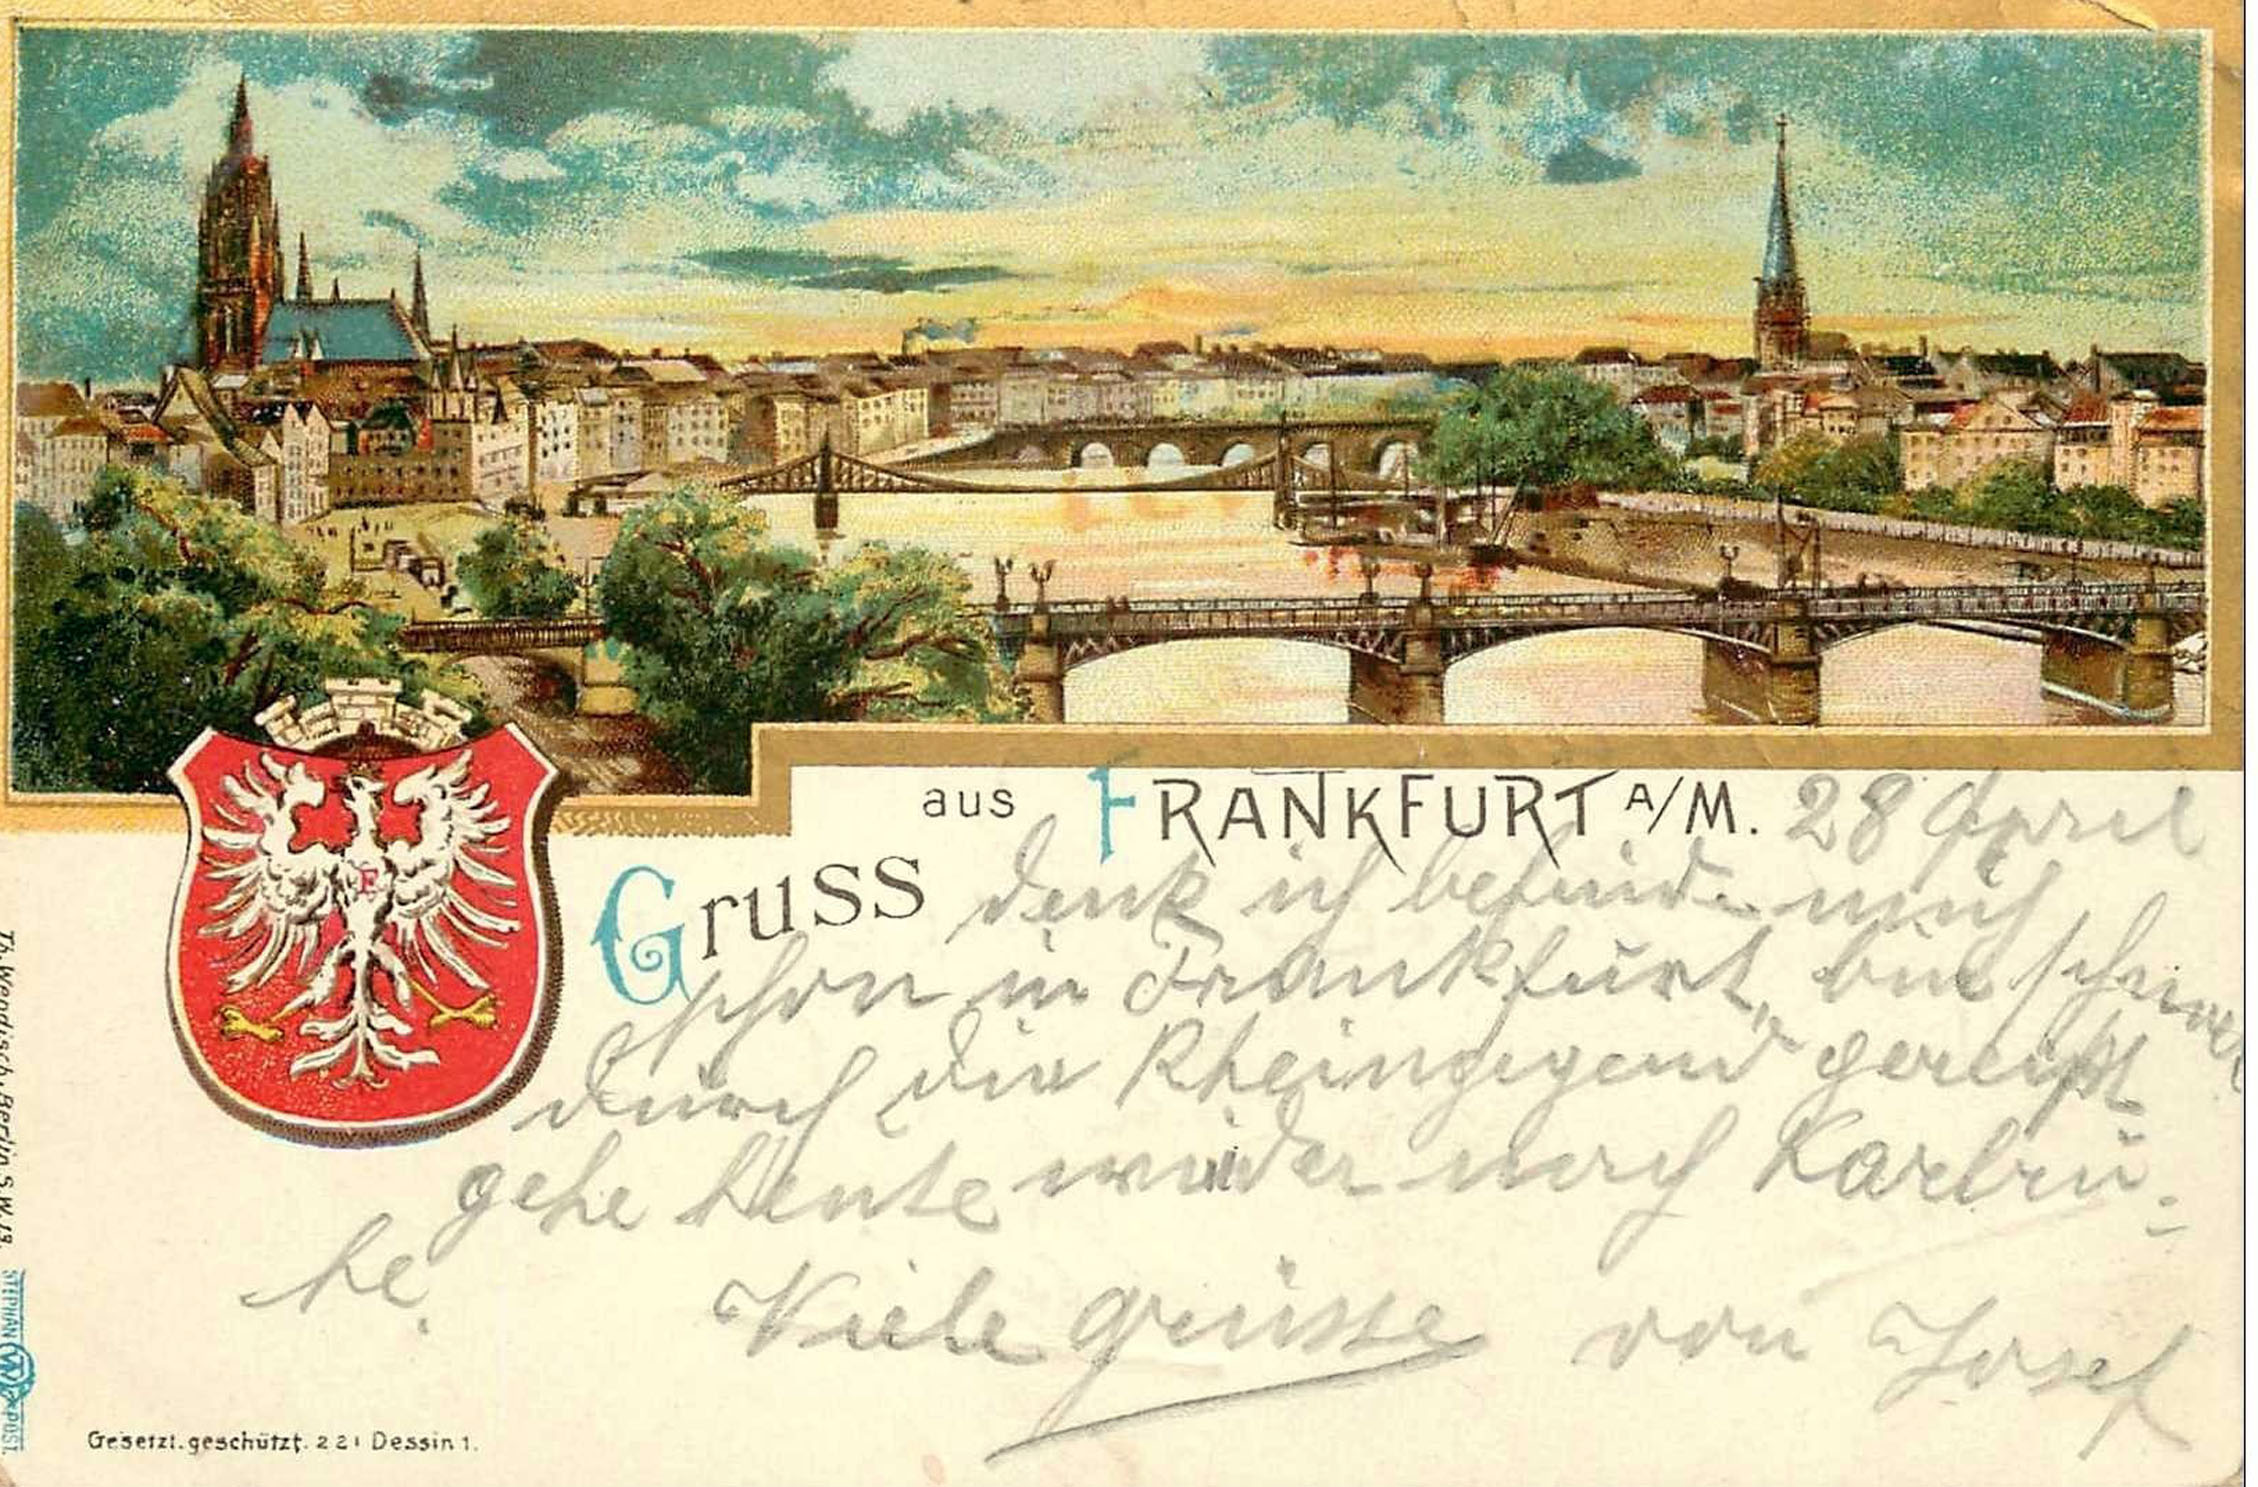 Gruss aus FRANKFURT A/M.
28 April
denk ich befinde mich
schon in Frankfurt, bin
durch die Rheingegend gereißt
gehe heute wieder nach Karlsru-
he.
Viele grüsse von Josef
Gesetzl. geschützt. 221 Dessin 1.
Th. Wendisch, Berlin S.W. 13.
STEPHAN W POST.
E